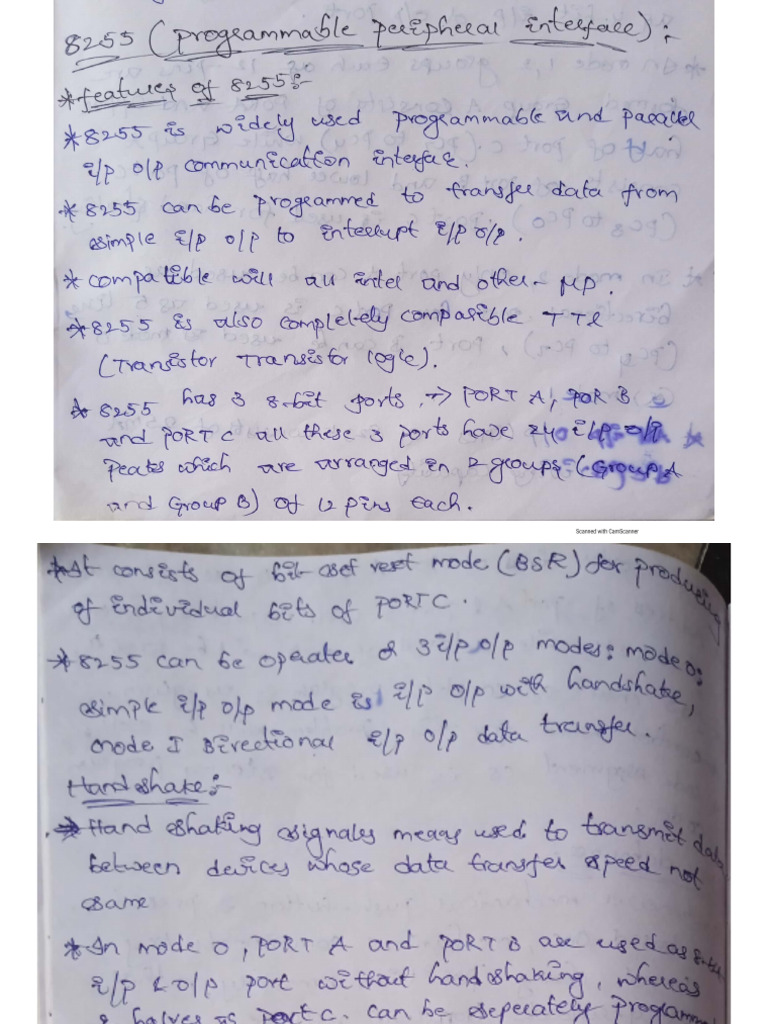 8255 (programmable peripheral interface):
* features of 8255:-
* 8255 is widely used programmable and parallel
i/p o/p communication interface.
* 8255 can be programmed to transfer data from
simple i/p o/p to interrupt i/p o/p.
* compatible will all intel and other- μp.
* 8255 is also completely compatible TTl
(Transistor Transistor logic).
* 8255 has 3 8-bit ports, → PORT A, POR B
and PORT C all these 3 ports have 24 i/p o/p
which are arranged in 2 groups (Group A
and Group B) of 12 pins each.
Scanned with CamScanner
* It consists of bit set reset mode (BSR) for producing
of individual bits of PORT C.
* 8255 can be operates of 3 i/p o/p modes: mode 0:
simple i/p o/p mode is i/p o/p with handshake,
mode I Birectional i/p o/p data transfer.
Handshake:-
* Hand shaking signales means used to transmit data
between devices whose data transfer speed not
same
* In mode 0, PORT A and PORT B are used as 8-bit
i/p & o/p port without handshaking, whereas
halves is Port C. can be seperately